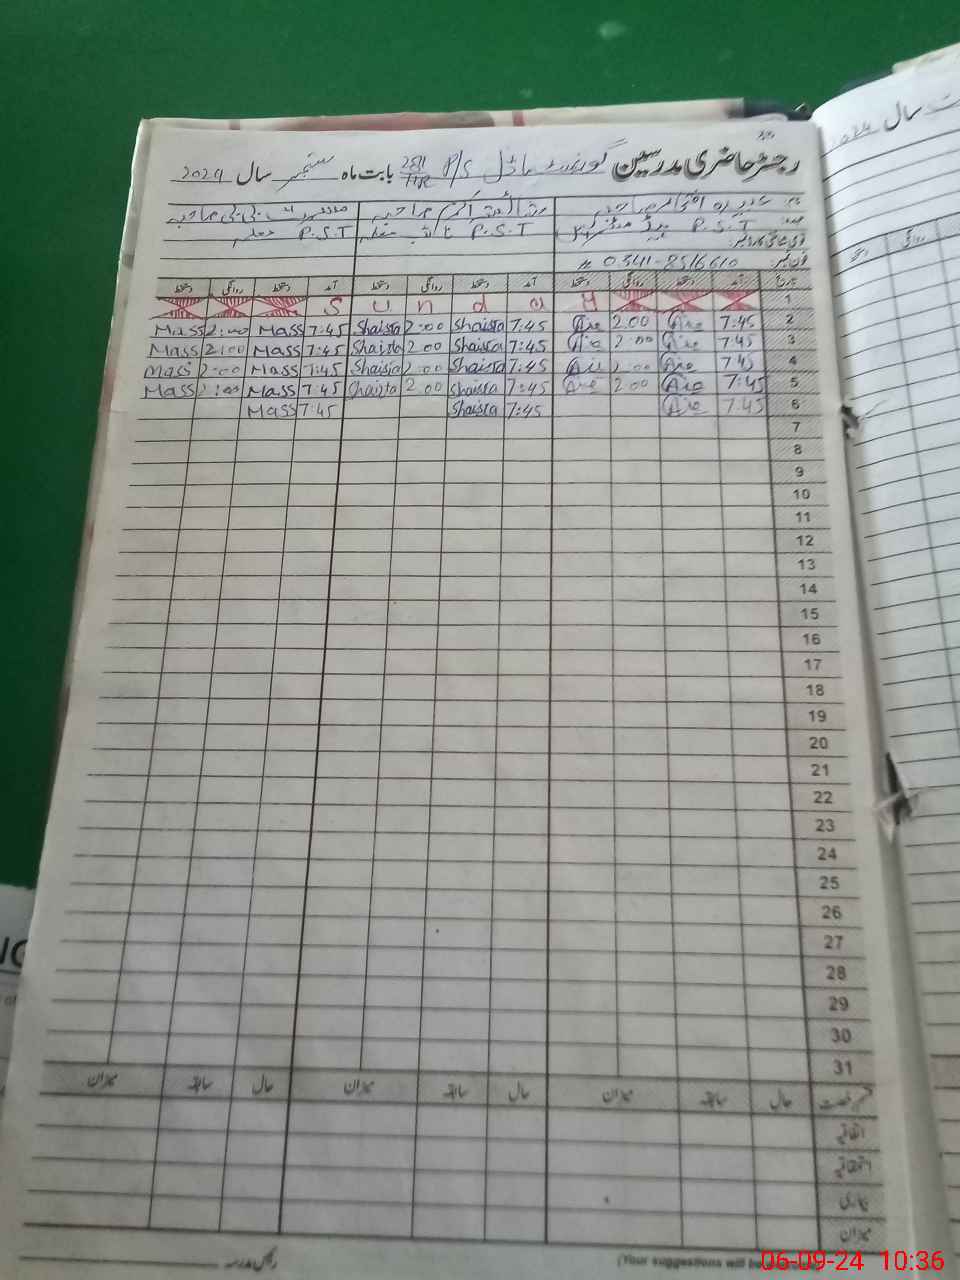 رجسٹر حاضری مدرسین گورنمنٹ ماڈل P/S بابت ماہ ستمبر سال 2024
P.S.T P.S.T P.S.T
فون نمبر: 0341-8516610
تاریخ آمد دستخط روانگی دستخط آمد دستخط روانگی دستخط آمد دستخط روانگی دستخط
1 S u n d a y
2 7:45 2.00 7:45 Shaista 2:00 Shaista 7:45 Mass 2:00 Mass
3 7:45 2:00 7:45 Shaista 2.00 Shaista 7:45 Mass 2:00 Mass
4 7:45 2:00 7:45 Shaista 2:00 Shaista 7:45 Mass 2:00 Mass
5 7:45 2:00 7:45 Shaista 2.00 Shaista 7:45 Mass 2:00 Mass
6 7:45 7:45 Shaista 7:45 Mass
7
8
9
10
11
12
13
14
15
16
17
18
19
20
21
22
23
24
25
26
27
28
29
30
31
حال سابقہ میزان حال سابقہ میزان حال سابقہ میزان
اتفاقیہ
استحقاقیہ
بیماری
میزان
رئیس مدرسہ
(Your suggestions will be
سال
روانگی
06-09-24 10:36